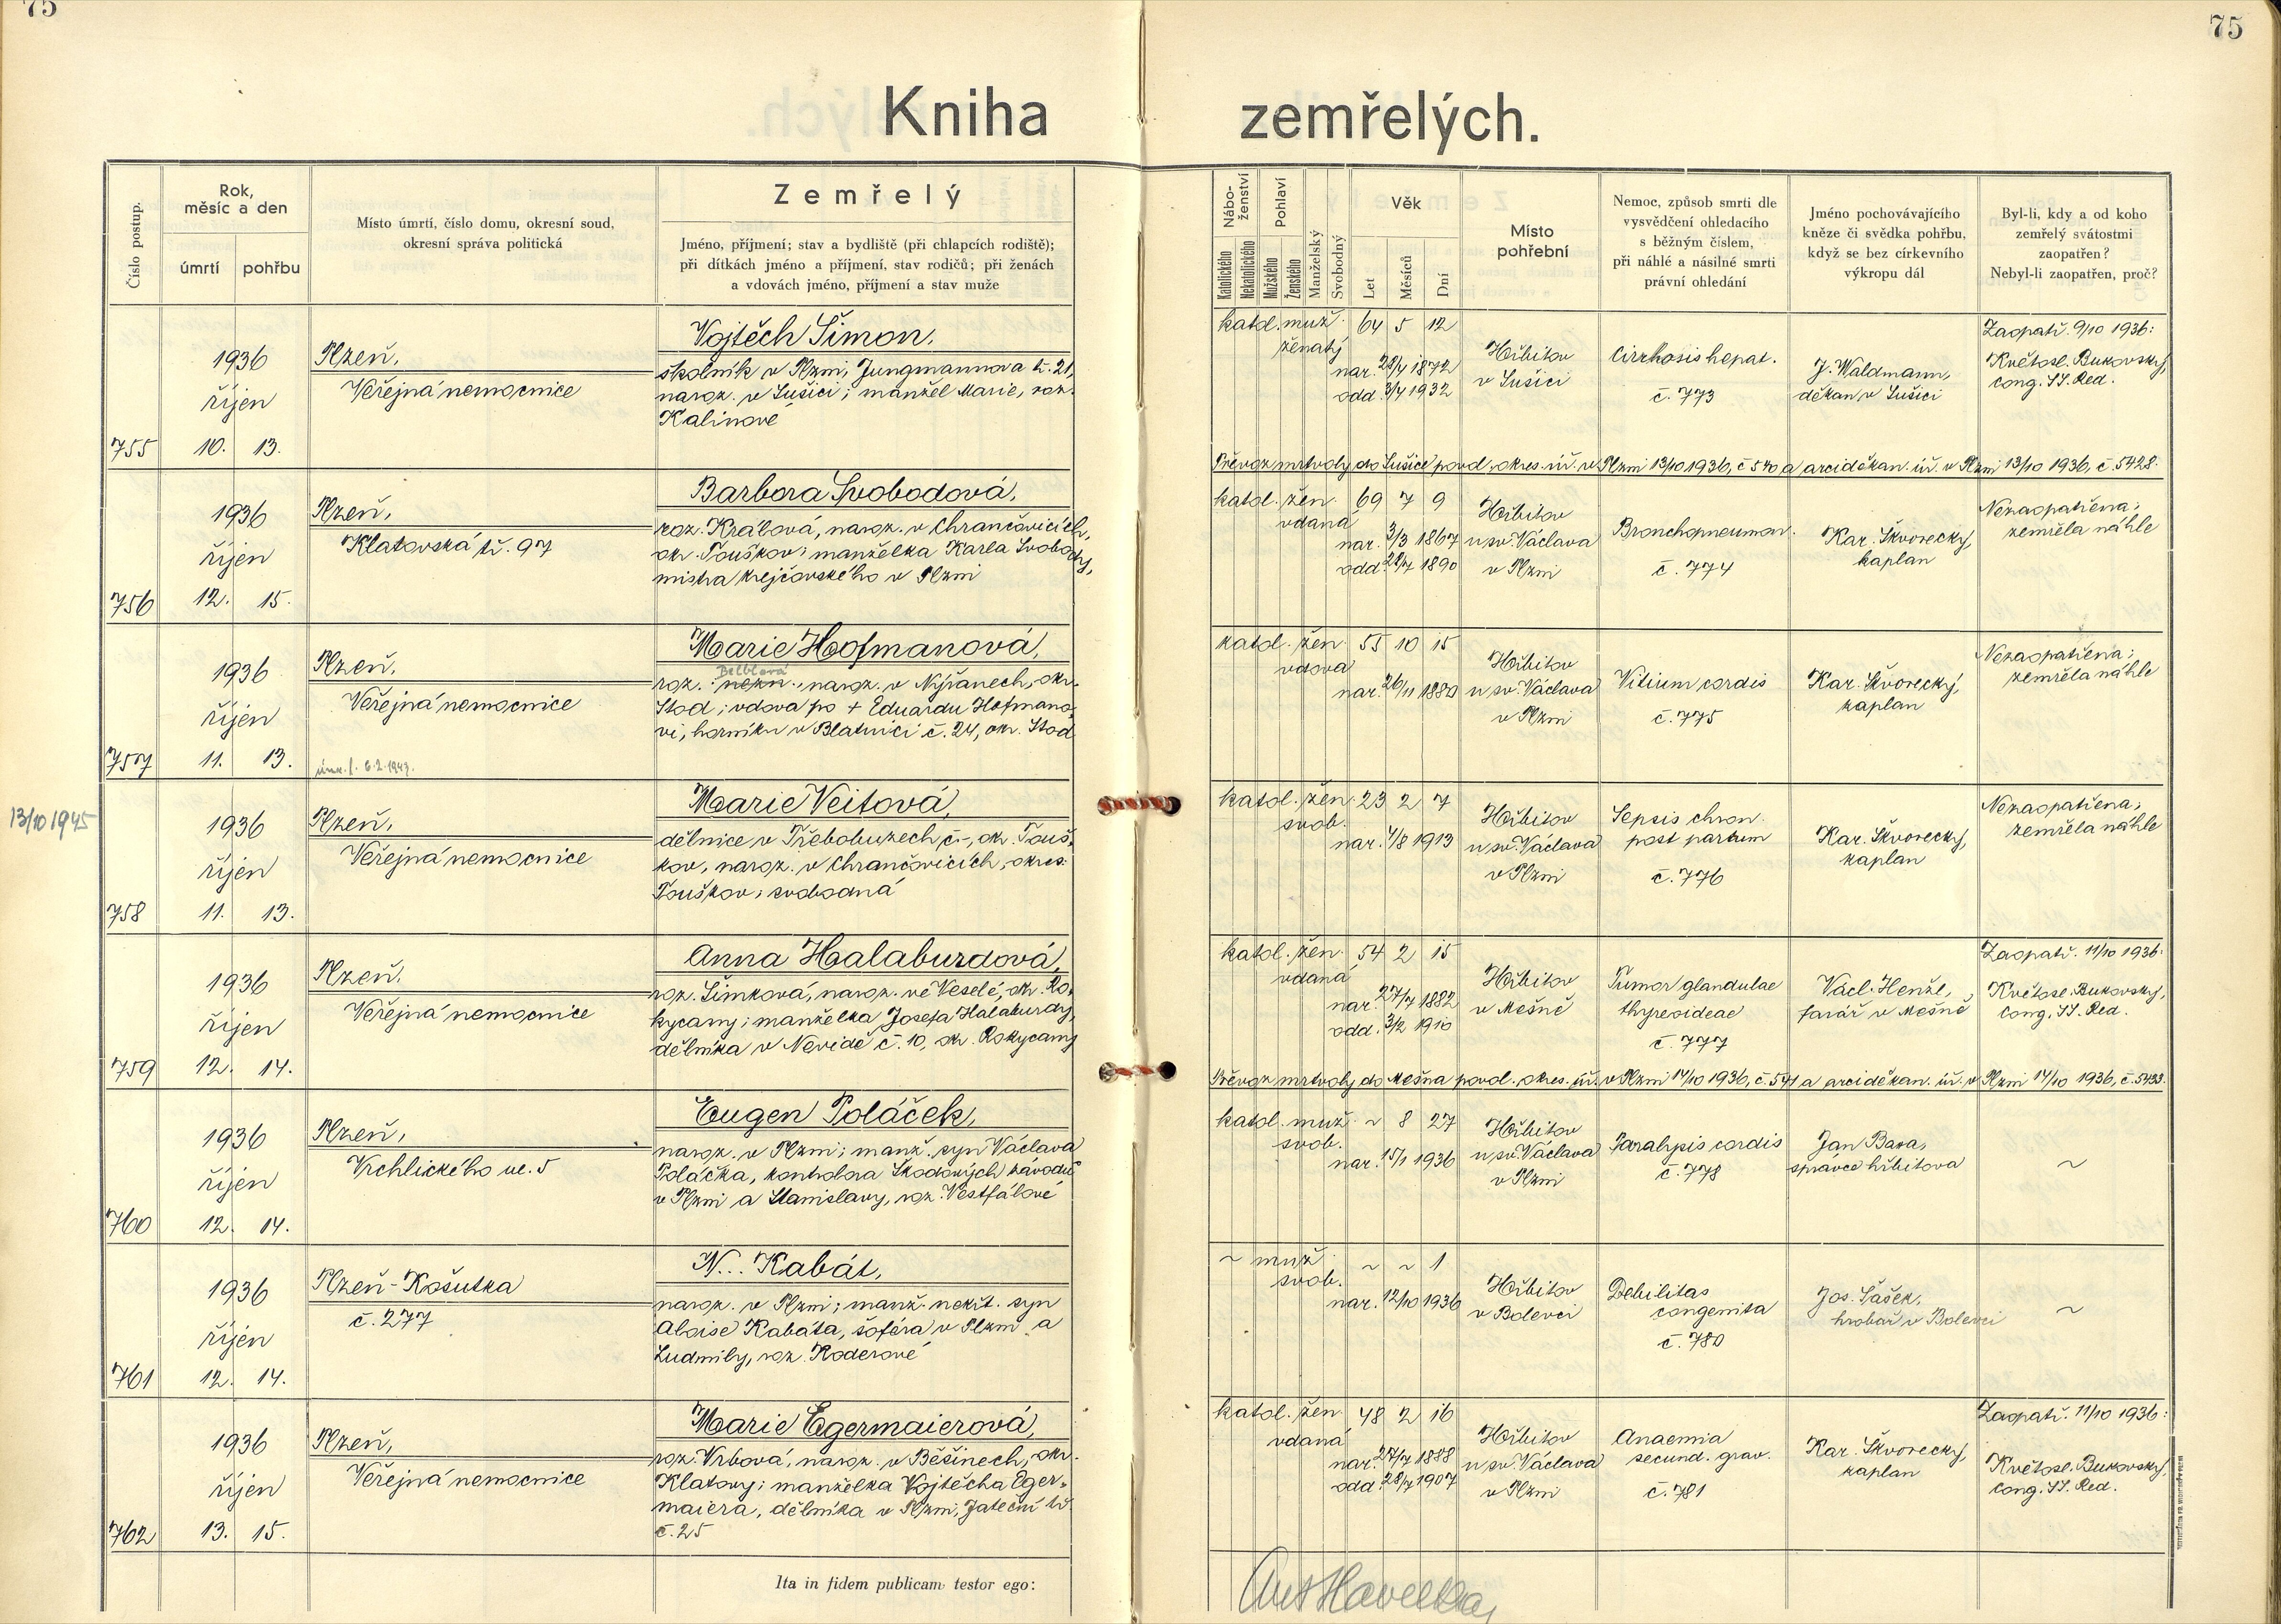 75
75
Kniha zemřelých.
Číslo postup.
Rok,
měsíc a den
úmrtí
pohřbu
Místo úmrtí, číslo domu, okresní soud,
okresní správa politická
Zemřelý
Jméno, příjmení; stav a bydliště (při chlapcích rodiště);
při dítkách jméno a příjmení, stav rodičů; při ženách
a vdovách jméno, příjmení a stav muže
Nábo-
ženství
Katolického
Nekatolického
Pohlaví
Mužského
Ženského
Manželský
Svobodný
Věk
Let
Měsíců
Dní
Místo
pohřební
Nemoc, způsob smrti dle
vysvědčení ohledacího
s běžným číslem,
při náhlé a násilné smrti
právní ohledání
Jméno pochovávajícího
kněze či svědka pohřbu,
když se bez církevního
výkropu dál
Byl-li, kdy a od koho
zemřelý svátostmi
zaopatřen?
Nebyl-li zaopatřen, proč?
755
1936
říjen
10. 13.
Plzeň,
Veřejná nemocnice
Vojtěch Šimon,
školník v Plzni, Jungmannova tř. 21,
naroz. v Sušici; manžel Marie, roz.
Kalinové
katol. muž. 64 5 12
ženatý
nar. 28/4 1872
odd. 3/4 1932
Hřbitov
v Sušici
Cirrhosis hepat.
č. 773
J. Waldmann,
děkan v Sušici
Zaopatř. 9/10 1936:
Květosl. Bukovský,
cong. SS. Red.
Převoz mrtvoly do Sušice povol. okres. úř. v Plzni 13/10 1936, č. 540 a arciděkan. úř. v Plzni 13/10 1936, č. 5428.
756
1936
říjen
12. 15.
Plzeň,
Klatovská tř. 97
Barbora Svobodová,
roz. Králová, naroz. v Chrančovicích,
okr. Touškov; manželka Karla Svobody,
mistra krejčovského v Plzni
katol. žen. 69 7 9
vdaná
nar. 3/3 1867
odd. 28/7 1890
Hřbitov
u sv. Václava
v Plzni
Bronchopneumon.
č. 774
Kar. Škvorecký,
kaplan
Nezaopatřena;
zemřela náhle
757
1936
říjen
11. 13.
Plzeň,
Veřejná nemocnice
6.2.1943.
Marie Hofmanová,
Belblová
roz. nezn., naroz. v Nýřanech, okr.
Stod; vdova po + Eduardu Hofmano-
vi, horníku v Blatnici č. 24, okr. Stod
katol. žen. 55 10 15
vdova
nar. 26/11 1880
Hřbitov
u sv. Václava
v Plzni
Vitium cordis
č. 775
Kar. Škvorecký,
kaplan
Nezaopatřena;
zemřela náhle
13/10 1945
758
1936
říjen
11. 13.
Plzeň,
Veřejná nemocnice
Marie Veitová,
dělnice v Třebobuzech č. –, okr. Touš-
kov, naroz. v Chrančovicích, okres.
Touškov; svobodná
katol. žen. 23 2 7
svob.
nar. 4/8 1913
Hřbitov
u sv. Václava
v Plzni
Sepsis chron.
post partum
č. 776
Kar. Škvorecký,
kaplan
Nezaopatřena;
zemřela náhle
759
1936
říjen
12. 14.
Plzeň,
Veřejná nemocnice
Anna Halaburdová,
roz. Šimková, naroz. ve Veselé, okr. Ro-
kycany; manželka Josefa Halaburdy,
dělníka v Nevidě č. 10, okr. Rokycany
katol. žen. 54 2 15
vdaná
nar. 27/7 1882
odd. 3/2 1910
Hřbitov
v Mešně
Tumor glandulae
thyreoideae
č. 777
Václ. Henžl,
farář v Mešně
Zaopatř. 11/10 1936:
Květosl. Bukovský,
cong. SS. Red.
Převoz mrtvoly do Mešna povol. okres. úř. v Plzni 14/10 1936, č. 541 a arciděkan. úř. v Plzni 14/10 1936, č. 5433.
760
1936
říjen
12. 14.
Plzeň,
Vrchlického ul. 5
Eugen Poláček,
naroz. v Plzni; manž. syn Václava
Poláčka, kontrolora Škodových závodů
v Plzni a Stanislavy, roz. Vestfálové
katol. muž. ~ 8 27
svob.
nar. 15/1 1936
Hřbitov
u sv. Václava
v Plzni
Paralysis cordis
č. 778
Jan Basa,
správce hřbitova
~
761
1936
říjen
12. 14.
Plzeň-Košutka
č. 277
N... Kabát,
naroz. v Plzni; manž. nekřt. syn
Aloise Kabáta, šoféra v Plzni a
Ludmily, roz. Roderové
~ muž. ~ ~ 1
svob.
nar. 12/10 1936
Hřbitov
v Bolevci
Debilitas
congenita
č. 780
Jos. Šašek,
hrobař v Bolevci
~
762
1936
říjen
13. 15.
Plzeň,
Veřejná nemocnice
Marie Egermaierová,
roz. Vrbová, naroz. v Běšinech, okr.
Klatovy; manželka Vojtěcha Eger-
maiera, dělníka v Plzni, Jateční tř.
č. 25
katol. žen. 48 2 16
vdaná
nar. 27/7 1888
odd. 28/7 1907
Hřbitov
u sv. Václava
v Plzni
Anaemia
secund. grav.
č. 781
Kar. Škvorecký,
kaplan
Zaopatř. 11/10 1936:
Květosl. Bukovský,
cong. SS. Red.
Ita in fidem publicam testor ego:
Ant Havelka